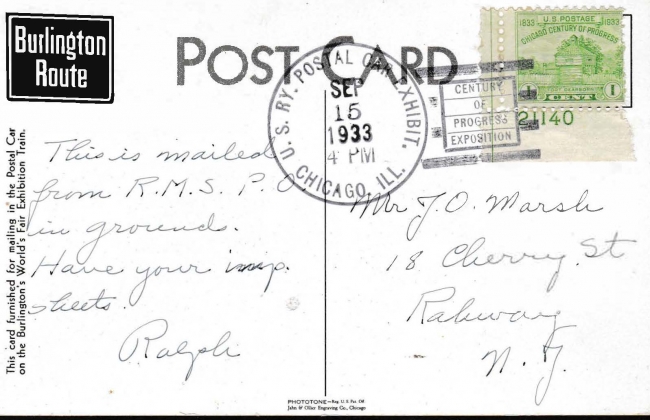 Burlington
Route
POST CARD
U.S. RY. POSTAL CAR EXHIBIT,
CHICAGO, ILL.
SEP
15
1933
4 PM
CENTURY
OF
PROGRESS
EXPOSITION
1833 U.S. POSTAGE 1933
CHICAGO CENTURY OF PROGRESS
FORT DEARBORN
1 CENT 1
21140
This card furnished for mailing in the Postal Car
on the Burlington's World's Fair Exhibition Train.
This is mailed
from R.M.S. P.O
in grounds.
Have your imp.
sheets.
Ralph
Mr J.O. Marsh
18 Cherry St
Rahway
N. J.
PHOTOTONE—Reg. U.S. Pat. Off.
John & Ollier Engraving Co., Chicago